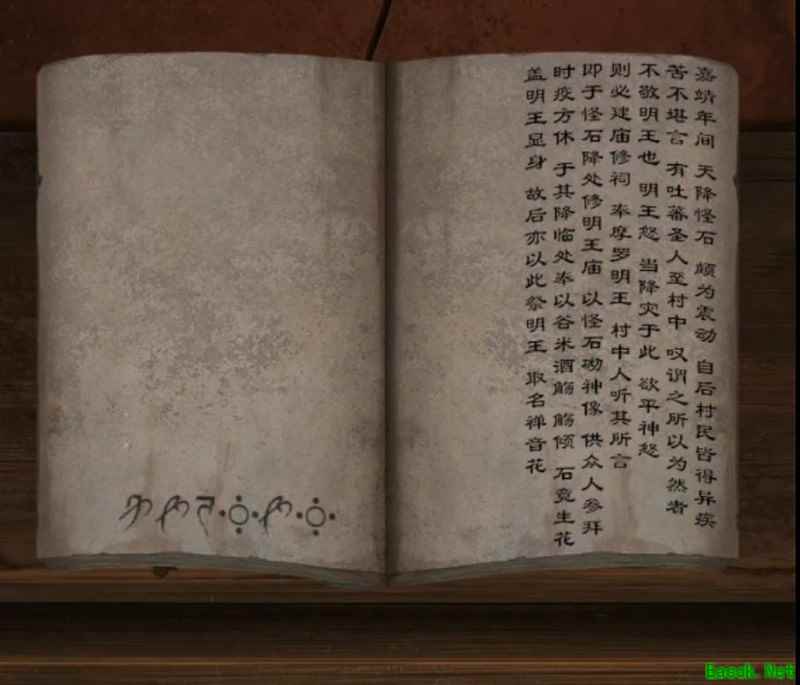 嘉靖年间 天降怪石 颇为震动 自后村民皆得异疾
苦不堪言 有吐蕃圣人至村中 叹谓之所以为然者
不敬明王也 明王怒 当降灾于此 欲平神怒
则必建庙修祠 奉摩罗明王 村中人听其所言
即于怪石降处修明王庙 以怪石砌神像 供众人参拜
时疫方休 于其降临处奉以谷米酒觞 觞倾 石竟生花
盖明王显身 故后亦以此祭明王 取名禅音花
Eaeok.Net